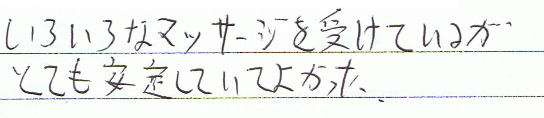 いろいろなマッサージを受けているが
とても安定していてよかった。